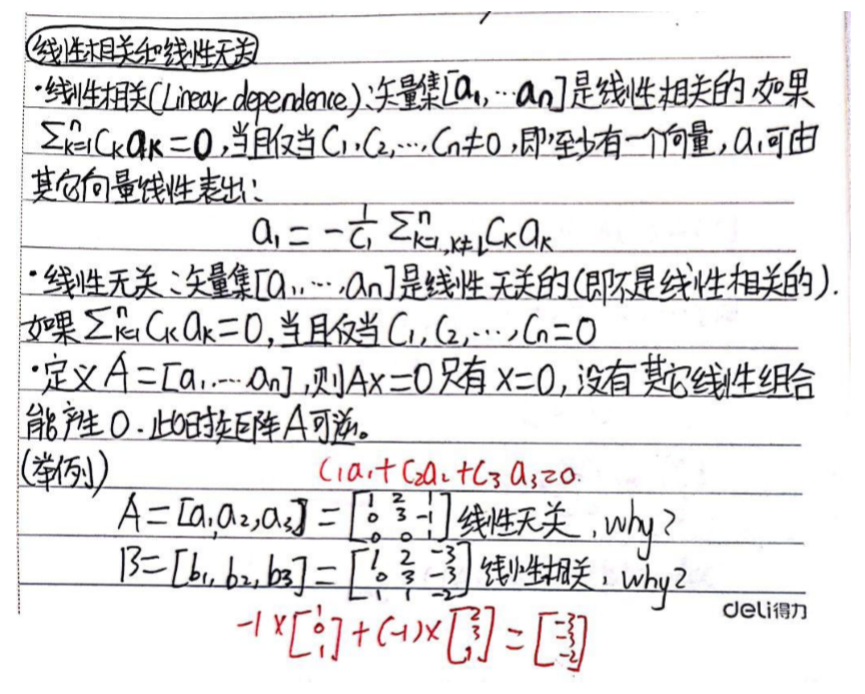 线性相关和线性无关
·线性相关(Linear dependence):矢量集[a₁,…an]是线性相关的,如果
∑ⁿₖ₌₁Cₖaₖ=0,当且仅当C₁,C₂,…,Cn≠0,即至少有一个向量,a₁可由
其它向量线性表出:
a₁=-1/C₁ ∑ⁿₖ₌₁,ₖ≠₁Cₖaₖ
·线性无关:矢量集[a₁,…,an]是线性无关的(即不是线性相关的).
如果∑ⁿₖ₌₁Cₖaₖ=0,当且仅当C₁,C₂,…,Cn=0
·定义A=[a₁…an],则Ax=0只有x=0,没有其它线性组合
能产生0.此时矩阵A可逆。
(举例)
C₁a₁+C₂a₂+C₃a₃=0.
A=[a₁,a₂,a₃]=[1 2 1; 0 3 -1; 0 0 1]线性无关,why?
B=[b₁,b₂,b₃]=[1 2 -3; 0 3 -3; 1 1 -2]线性相关,why?
deli得力
-1×[1; 0; 1]+(-1)×[2; 3; 1]=[-3; -3; -2]